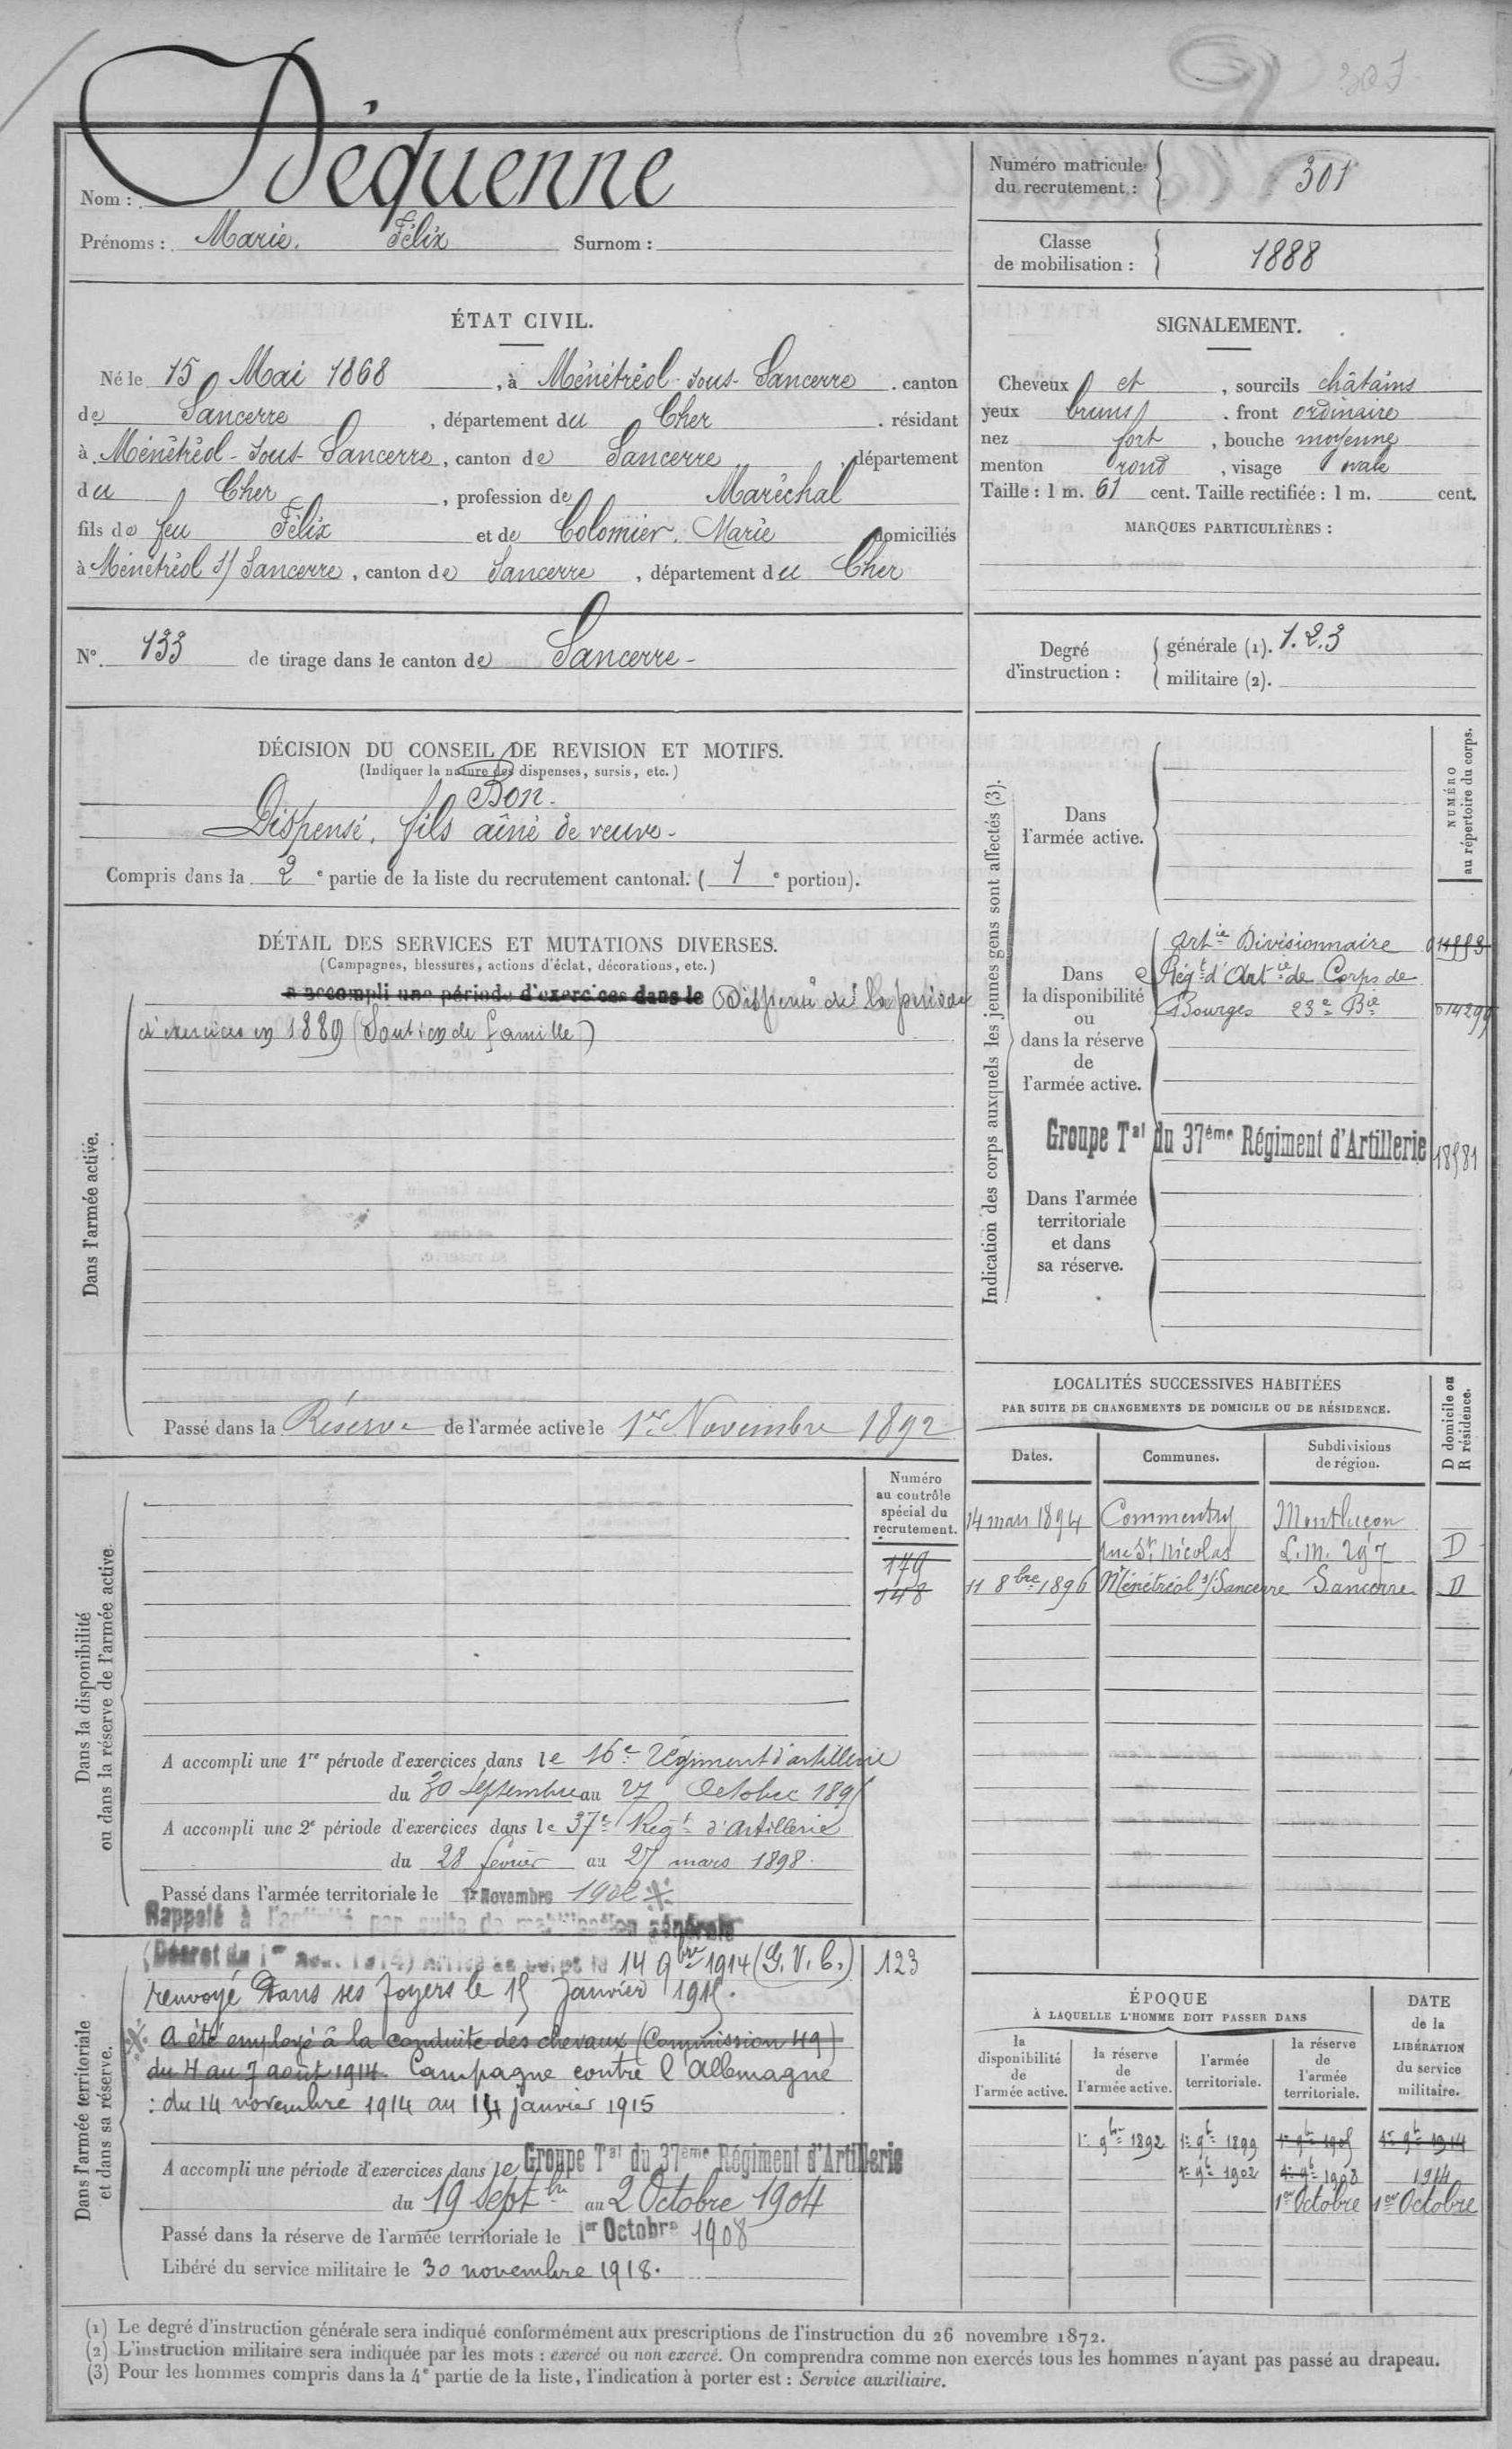 Nom : Déquenne
Prénoms : Marie. Félix Surnom :
Numéro matricule du recrutement : 301
Classe de mobilisation : 1888
ÉTAT CIVIL.
Né le 15 Mai 1868, à Ménétréol-sous-Sancerre. canton
de Sancerre, département du Cher. résidant
à Ménétréol-sous-Sancerre, canton de Sancerre, département
du Cher, profession de Maréchal
fils de feu Félix et de Colomier. Marie domiciliés
à Ménétréol s/ Sancerre, canton de Sancerre, département du Cher
N° 133 de tirage dans le canton de Sancerre-
SIGNALEMENT.
Cheveux et, sourcils châtains
yeux bruns. front ordinaire
nez fort, bouche moyenne
menton rond, visage ovale
Taille : 1 m. 61 cent. Taille rectifiée : 1 m. cent.
MARQUES PARTICULIÈRES :
Degré d'instruction :
générale (1). 1.2.3
militaire (2).
DÉCISION DU CONSEIL DE REVISION ET MOTIFS.
(Indiquer la nature des dispenses, sursis, etc.)
Bon.
Dispensé, fils aîné de veuve-
Compris dans la 2e partie de la liste du recrutement cantonal. (1e portion).
DÉTAIL DES SERVICES ET MUTATIONS DIVERSES.
(Campagnes, blessures, actions d'éclat, décorations, etc.)
Dans l'armée active.
a accompli une période d'exercices dans le Dispensé de la période
d'exercices en 1889 (Soutien de famille)
Passé dans la Réserve de l'armée active le 1er Novembre 1892
Indication des corps auxquels les jeunes gens sont affectés (3).
NUMÉRO au répertoire du corps.
Dans l'armée active.
Dans la disponibilité ou dans la réserve de l'armée active.
Artie Divisionnaire
Régt d'Artie de Corps de
Bourges 23e Bie 14299
Groupe Tal du 37ème Régiment d'Artillerie 18981
Dans l'armée territoriale et dans sa réserve.
LOCALITÉS SUCCESSIVES HABITÉES
PAR SUITE DE CHANGEMENTS DE DOMICILE OU DE RÉSIDENCE.
Dates. Communes. Subdivisions de région. D domicile ou R résidence.
14 mars 1894 Commentry Montluçon
rue St Nicolas L.M. 297 D
11 8bre 1896 Ménétréol s/ Sancerre Sancerre D
Dans la disponibilité ou dans la réserve de l'armée active
Numéro au contrôle spécial du recrutement.
179
148
A accompli une 1re période d'exercices dans le 16e Régiment d'artillerie
du 30 Septembre au 27 Octobre 1895
A accompli une 2e période d'exercices dans le 37e Régt d'Artillerie
du 28 février au 27 mars 1898.
Passé dans l'armée territoriale le 1er Novembre 1902
Dans l'armée territoriale et dans sa réserve.
Rappelé à l'activité par suite de mobilisation générale
(Décret du 1er Août 1914) Arrivé au corps le 14 9bre 1914 (G.V.C.) 123
renvoyé Dans ses foyers le 15 Janvier 1915.
A été employé à la conduite des chevaux (Commission 49)
du 4 au 7 août 1914. Campagne contre l'Allemagne
: du 14 novembre 1914 au 14 janvier 1915
A accompli une période d'exercices dans le Groupe Tal du 37ème Régiment d'Artillerie
du 19 Septbre au 2 Octobre 1904
Passé dans la réserve de l'armée territoriale le 1er Octobre 1908
Libéré du service militaire le 30 novembre 1918.
ÉPOQUE À LAQUELLE L'HOMME DOIT PASSER DANS
la disponibilité de l'armée active.
la réserve de l'armée active.
l'armée territoriale.
la réserve de l'armée territoriale.
DATE de la LIBÉRATION du service militaire.
1er 9bre 1892 1er 9b 1899 1er 9b 1905 1er 9b 1914
1er 9b 1902 1er 9b 1908 1914
1er Octobre 1er Octobre
(1) Le degré d'instruction générale sera indiqué conformément aux prescriptions de l'instruction du 26 novembre 1872.
(2) L'instruction militaire sera indiquée par les mots : exercé ou non exercé. On comprendra comme non exercés tous les hommes n'ayant pas passé au drapeau.
(3) Pour les hommes compris dans la 4e partie de la liste, l'indication à porter est : Service auxiliaire.